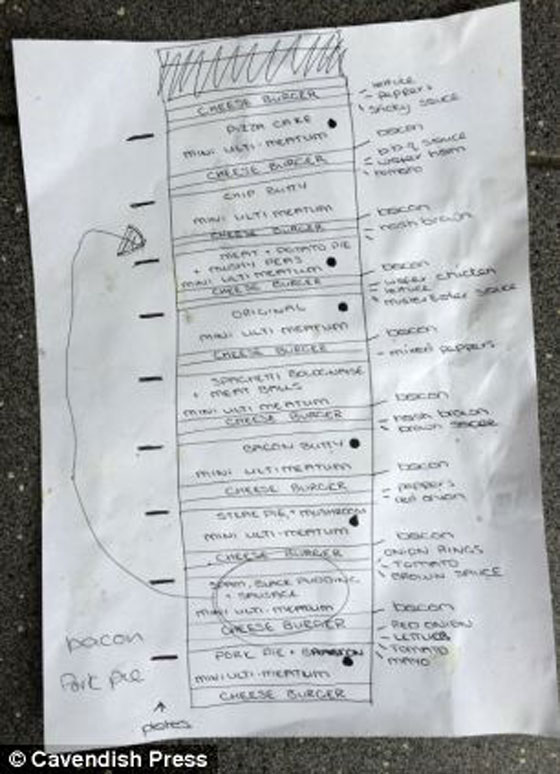 CHEESE BURGER
lettuce
peppers
sticky sauce
PIZZA CAKE
MINI ULTI-MEATUM
bacon
CHEESE BURGER
b.b.q sauce
wafer ham
tomato
CHIP BUTTY
MINI ULTI MEATUM
bacon
CHEESE BURGER
hash brown
MEAT + POTATO PIE
+ MUSHY PEAS
MINI ULTI MEATUM
bacon
CHEESE BURGER
wafer chicken
lettuce
ORIGINAL
MINI ULTI MEATUM
bacon
CHEESE BURGER
mixed peppers
SPAGHETTI BOLOGNAISE
+ MEAT BALLS
MINI ULTI MEATUM
bacon
CHEESE BURGER
hash brown
brown sauce
BACON BUTTY
MINI ULTI-MEATUM
bacon
CHEESE BURGER
peppers
red onion
STEAK PIE, + MUSHROOM
MINI ULTI-MEATUM
bacon
CHEESE BURGER
ONION RINGS
TOMATO
BROWN SAUCE
SPAM, BLACK PUDDING
+ SAUSAGE
MINI ULTI-MEATUM
bacon
CHEESE BURGER
RED ONION
LETTUCE
TOMATO
MAYO
bacon
Pork pie
PORK PIE +
MINI ULTI-MEATUM
CHEESE BURGER
plates
© Cavendish Press